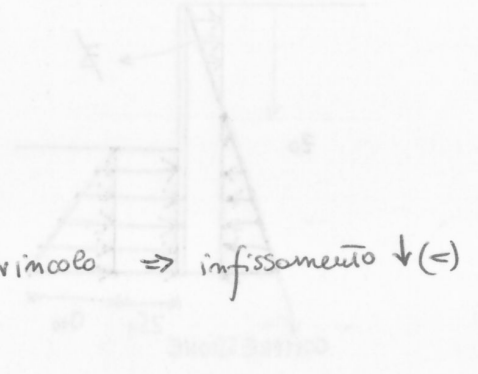 vincolo ⇒ infissamento ↓(<)